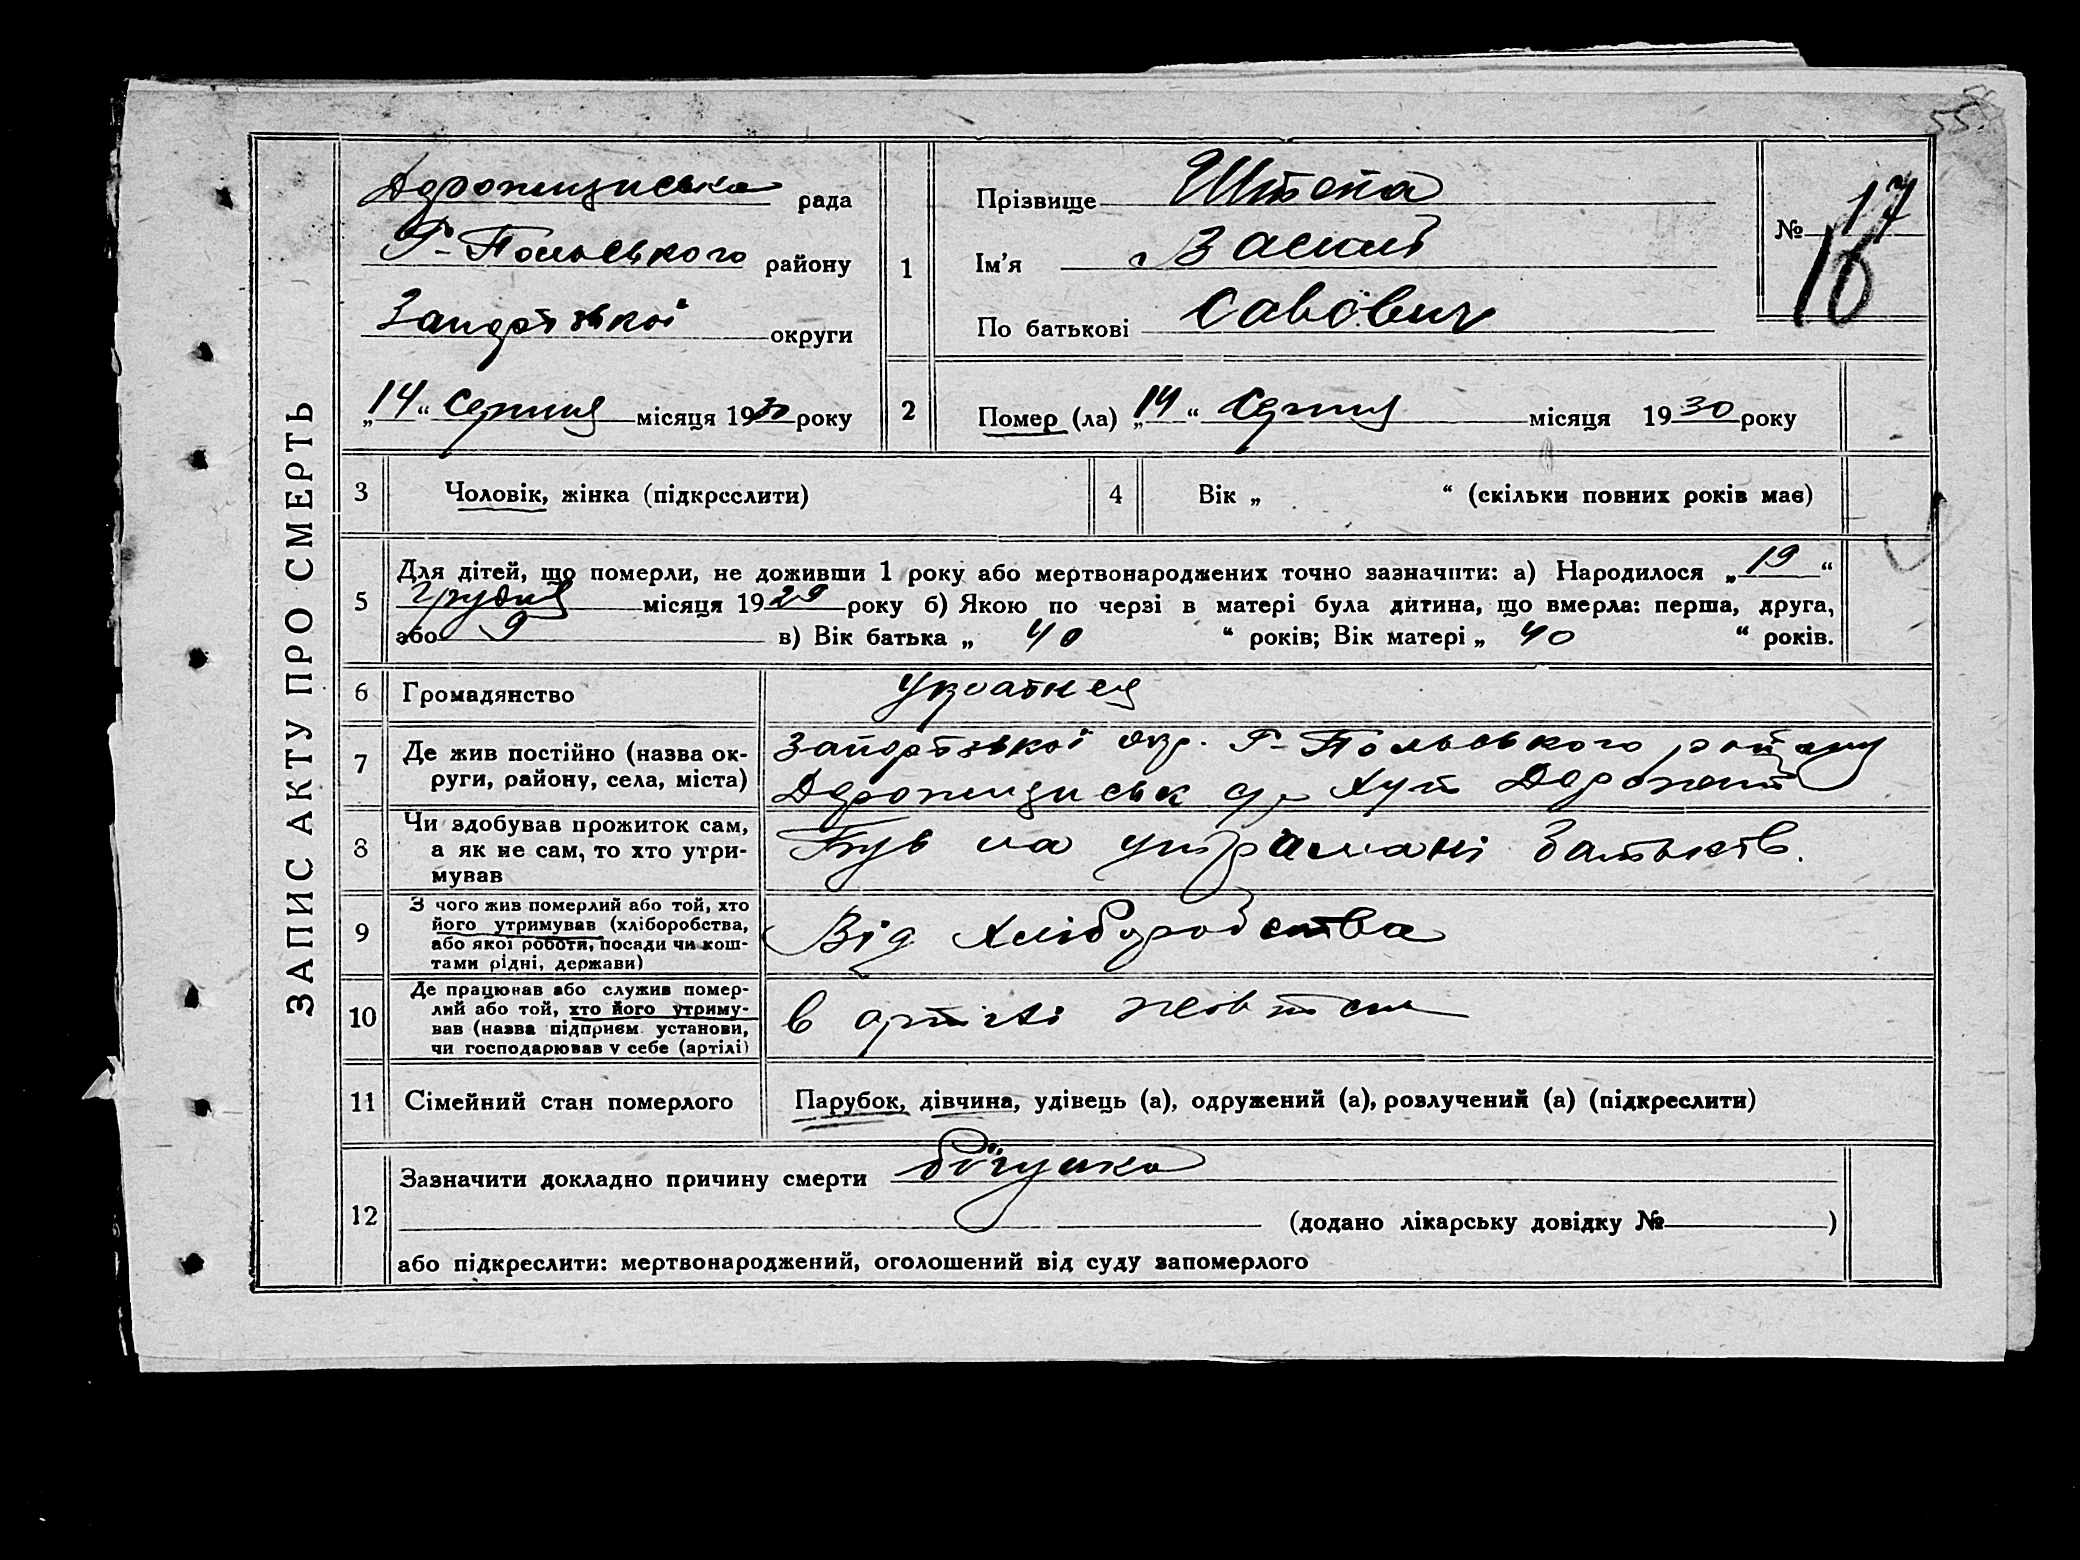 55.
ЗАПИС АКТУ ПРО СМЕРТЬ
рада
Г-Польського району
округи
„14“ Серпня місяця 1930 року
1
Прізвище Штепа
Ім'я Василь
По батькові Савович
№ 17
16
2
Помер (ла) „14“ Серпня місяця 1930 року
3
Чоловік, жінка (підкреслити)
4
Вік „ “ (скільки повних років має)
5
Для дітей, що померли, не доживши 1 року або мертвонароджених точно зазначити: а) Народилося „19“
Грудня місяця 1929 року б) Якою по черзі в матері була дитина, що вмерла: перша, друга,
або 9 в) Вік батька „ 40 “ років; Вік матері „ 40 “ років.
6
Громадянство
7
Де жив постійно (назва ок-
руги, району, села, міста)
окр. Г-Польського району
Хут
8
Чи здобував прожиток сам,
а як не сам, то хто утри-
мував
Був на батьків.
9
З чого жив померлий або той, хто
його утримував (хліборобства,
або якої роботи, посади чи кош-
тами рідні, держави)
Від Хліборобства
10
Де працював або служив помер-
лий або той, хто його утриму-
вав (назва підприєм. установи,
чи господарював у себе (артілі)
в артілі
11
Сімейний стан померлого
Парубок, дівчина, удівець (а), одружений (а), розлучений (а) (підкреслити)
12
Зазначити докладно причину смерти бігунка
(додано лікарську довідку № )
або підкреслити: мертвонароджений, оголошений від суду запомерлого